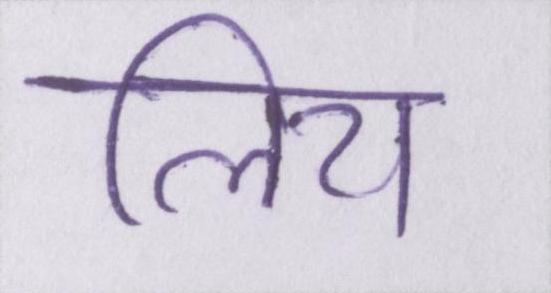 लिय